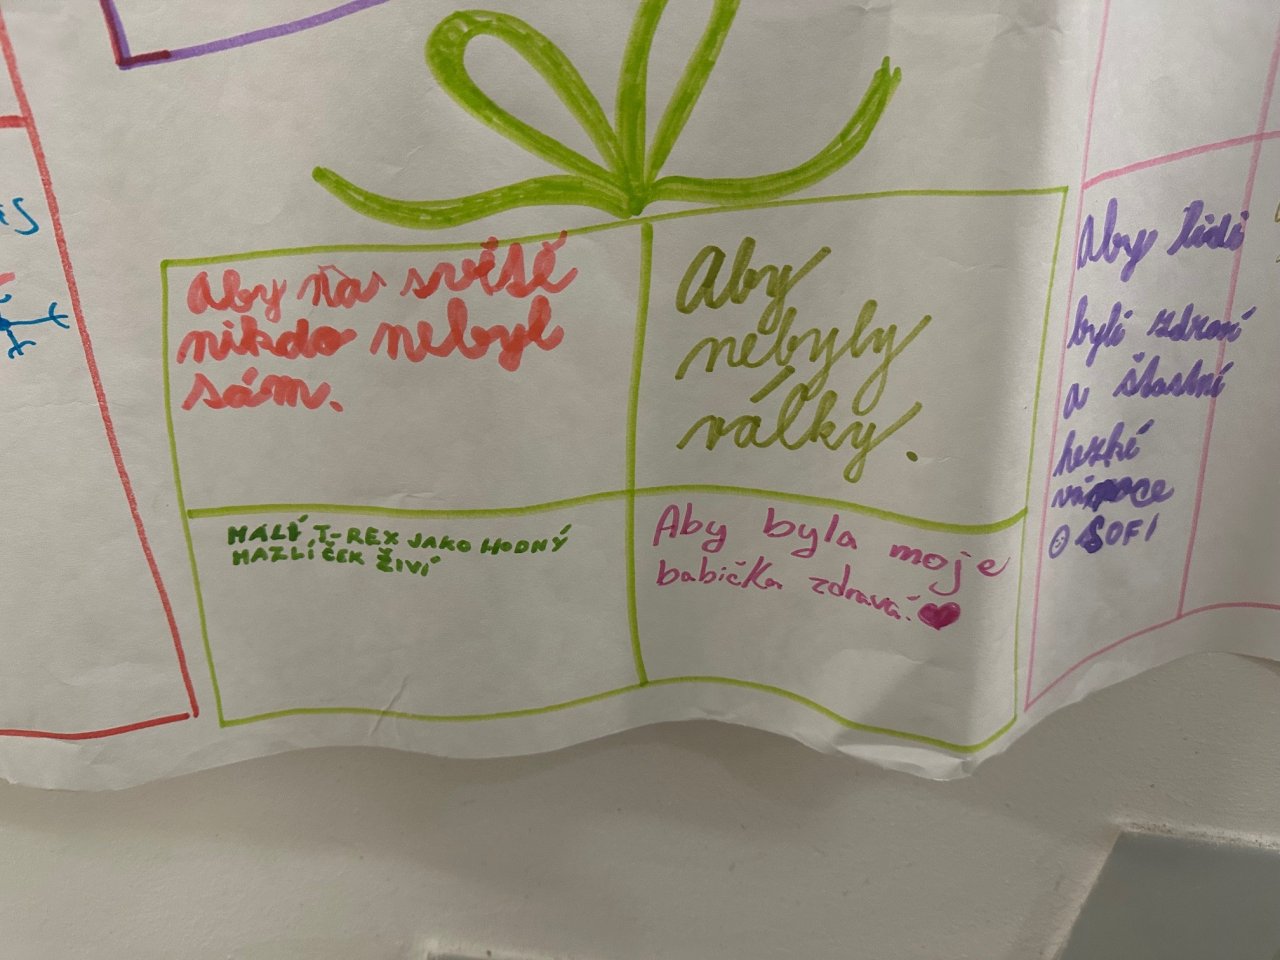 Aby na světě
nikdo nebyl
sám.
Aby
nebyly
války.
MALÝ T-REX JAKO HODNÝ
MAZLÍČEK ŽIVÍ
Aby byla moje
babička zdravá!
Aby lidi
byli zdraví
a šťastní
hezké
vánoce
SOFI